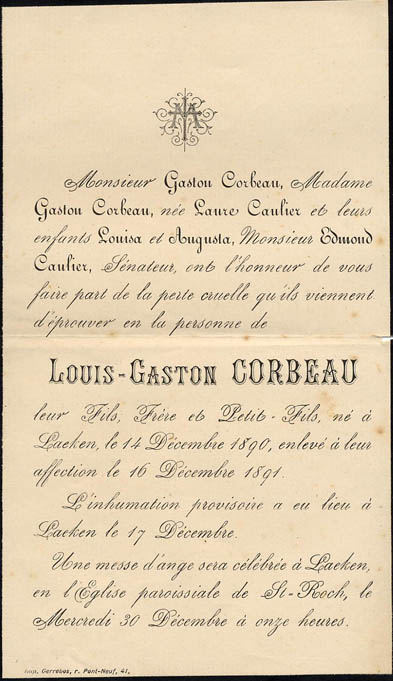 Monsieur Gaston Corbeau, Madame
Gaston Corbeau, née Laure Caulier et leurs
enfants Louisa et Augusta, Monsieur Edmond
Caulier, Sénateur, ont l'honneur de vous
faire part de la perte cruelle qu'ils viennent
d'éprouver en la personne de
LOUIS-GASTON CORBEAU
leur Fils, Frère et Petit-Fils, né à
Laeken, le 14 Décembre 1890, enlevé à leur
affection le 16 Décembre 1891.
L'inhumation provisoire a eu lieu à
Laeken le 17 Décembre.
Une messe d'ange sera célébrée à Laeken,
en l'Eglise paroissiale de St-Roch, le
Mercredi 30 Décembre à onze heures.
Imp. Gerrebos, r. Pont-Neuf, 41.